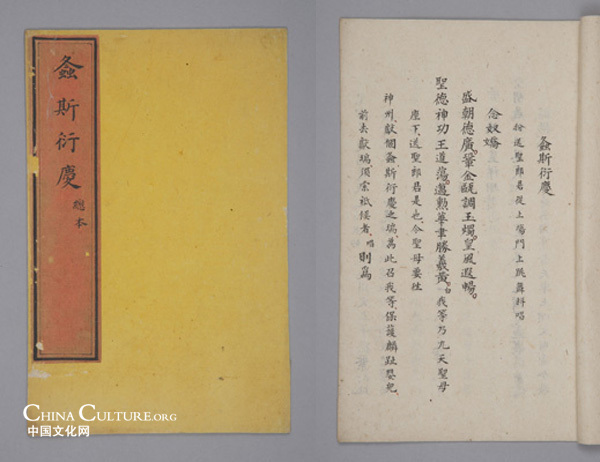 螽斯衍慶
總本
螽斯衍慶
扮送聖郎君從上場門上跳舞科唱
念奴嬌
盛朝德廣。鞏金甌調玉燭。皇風遐暢。
聖德神功王道蕩。邁勲華聿勝羲黃。白我等乃九天聖母
座下、送聖郎君是也、今聖母要往
神州、獻個螽斯衍慶之瑞、為此召我等、保護麟趾嬰兒
前去獻瑞、須索祗候者、唱則為
CHINA CULTURE.ORG
中国文化网